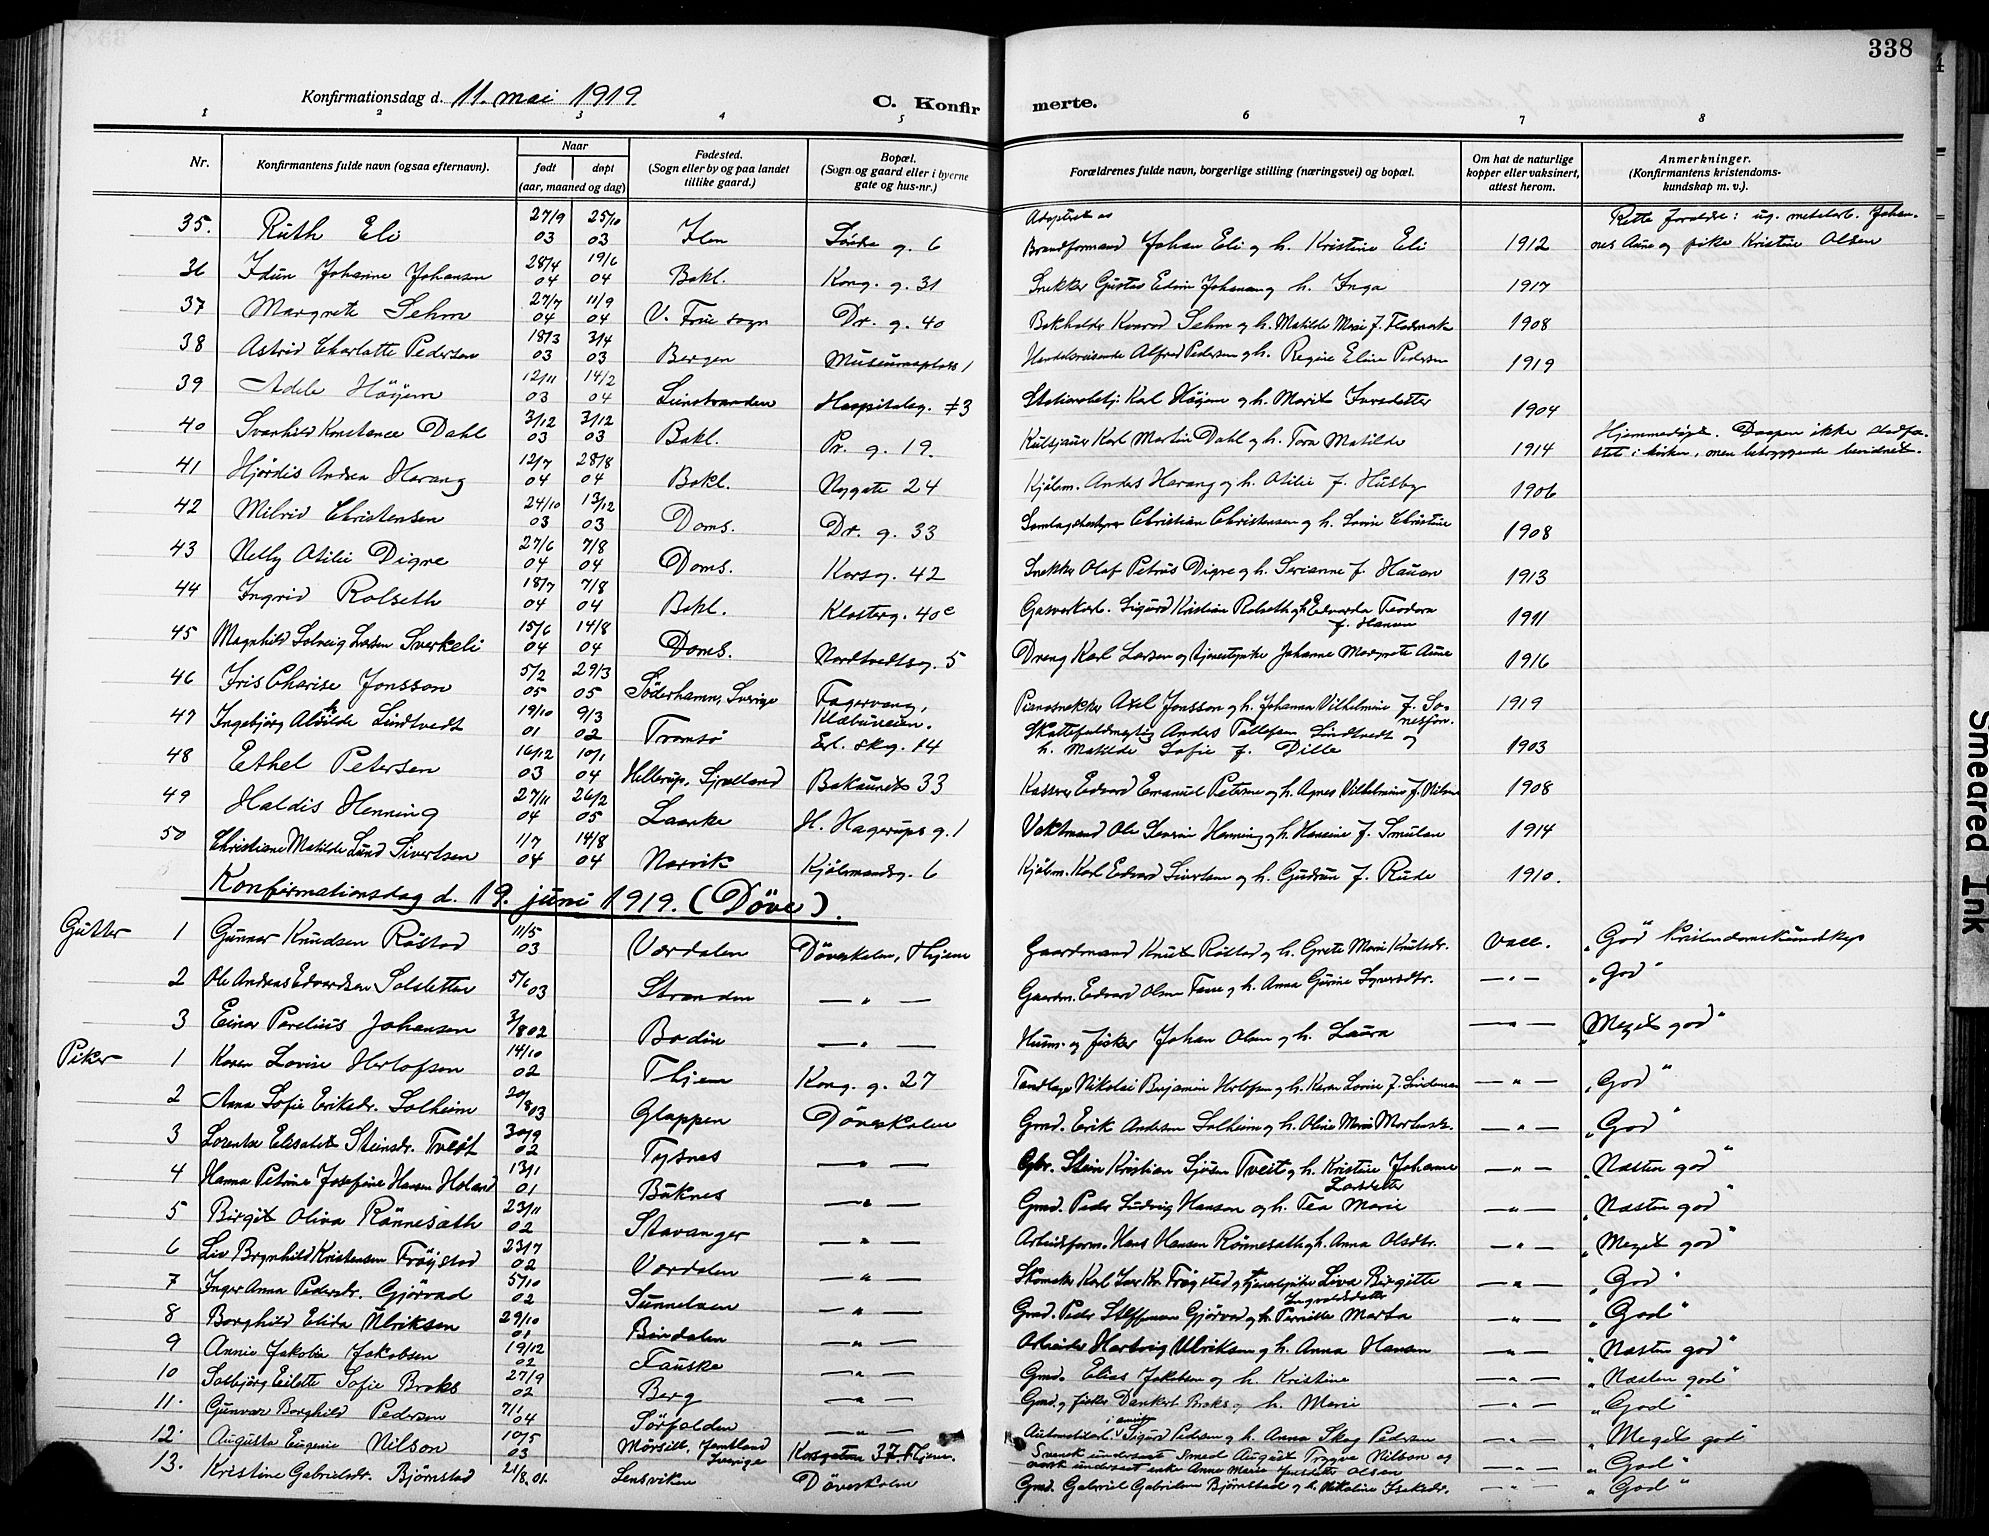 338
Konfirmationsdag d. 11. mai 1919.
C. Konfirmerte.
1 2 3 4 5 6 7 8
Nr. Konfirmantens fulde navn (ogsaa efternavn). Naar født døpt (aar, maaned og dag) Fødested. (Sogn eller by og paa landet tillike gaard.) Bopæl. (Sogn og gaard eller i byerne gate og hus-nr.) Forældrenes fulde navn, borgerlige stilling (næringsvei) og bopæl. Om hat de naturlige kopper eller vaksinert, attest herom. Anmerkninger. (Konfirmantens kristendomskundskap m. v.).
35. Ruth Eli 27/9 03 25/10 03 Ilen g. 6 Brandformand Johan Eli og h. Kristine Eli 1912 Rette foraldre: ug. metalarb. Johannes Aune og pike Kristine Olsen
36 Idun Johanne Johansen 28/4 04 19/6 04 Bakl. Kong. g. 31 Snekker Gustav Edvin Johansen og h. Inga 1917
37 Margrete Sehm 27/7 04 11/9 04 V. Frue sogn Dr. g. 40 Bokholder Konrad Sehm og h. Matilde Marie f. 1908
38 Astrid Charlotte Pedersen 18/3 03 3/4 03 Bergen Museumsplass 1 Handelsreisende Alfred Pedersen og h. Regine Eline Pedersen 1919
39 Adele Höyem 12/11 03 14/2 04 Hospitalsg. 3 Karl Höyem og h. Marit 1904
40 Svanhild Konstance Dahl 3/12 03 3/12 03 Bakl. Pr. g. 19. Karl Martin Dahl og h. Tora Matilde 1914 Hjemmedöpt. Daapen ikke stadfæstet i kirken, men betryggende bevidnet.
41 Hjördis Andrea Harang 12/7 04 28/8 04 Bakl. Nygate 24 Kjölm. Anders Harang og h. Otilie f. Husby 1906
42 Milrid Christensen 24/10 03 13/12 03 Doms. Dr. g. 33 Christian Christensen og h. Lovise Christine 1908
43 Nelly Otilie Digre 27/6 04 7/8 04 Doms. Korsg. 42 Snekker Olaf Petrus Digre og h. Serianne f. Hauan 1913
44 Ingrid Rolseth 18/7 04 7/8 04 Bakl. Klosterg. 40c Gasverkarb. Sigurd Kristian Rolseth og h. Edvarda Teodora f. Hansen 1911
45 Magnhild Solveig Larsen Sverkeli 15/6 04 14/8 04 Doms. Nordtvedtsg. 5 Dreng Karl Larsen og tjenestepike Johanne Margrete Aune 1916
46 Iris Charise Jonsson 5/2 05 29/3 05 Söderhamn, Sverige Fagervang, Klæbuveien. Pianosnekker Axel Jonsson og h. Johanna Vilhelmine f. 1919
47 Ingebjörg Lindtvedt 19/10 01 9/3 02 Tromsö Erl. skg. 14 Skattefuldmegtig Anders Tollefsen Lindtvedt og h. Matilde Sofie f. Dille 1903
48 Ethel Petersen 16/12 03 10/1 04 Hellerup, Sjælland Bakaunet 33 Kasserer Edvard Emanuel Petersen og h. Agnes Vilhelmine f. Nilsen 1908
49 Haldis Henning 27/11 04 26/2 05 Laanke H. Hagerups g. 1 Vaktmand Ole Severin Henning og h. Hansine f. Smulan 1914
50 Christiane Matilde Lund Sivertsen 1/7 04 14/8 04 Narvik Kjöbmandsg. 6 Kjöbm. Karl Edvard Sivertsen og h. Gudrun f. Rude 1910.
Konfirmationsdag d. 19. juni 1919. (Döve).
Gutter 1 Gunnar Knudsen Röstad 11/5 03 Værdalen Döveskolen, Thjem Gaardmand Knut Röstad og h. Grete Marie Knutsdr. vacc. "God" kristendomskundskap
2 Ole Andreas Edvardsen Solsletten 5/6 03 Stranden — " — Gaardm. Edvard Olsen og h. Anna Gurine — " — "God"
3 Einar Parelius Johansen 3/8 02 Bodin — " — Husm. og fisker Johan Olsen og h. Laura — " — "Meget god"
Piker 1 Karen Lovise Herlofson 14/10 02 Thjem Kong. g. 27 Tandlæge Nikolai Benjamin Herlofson og h. Karen Lovise f. Lindeman — " — "God"
2 Anna Sofie Eriksdr. Solheim 20/8 03 Gloppen Döveskolen Gmd. Erik Andersen Solheim og h. Oline Marie — " — "God"
3 Lorentse Elisabet Steinsdr. Tveit 30/9 02 Tysnes — " — Gbr. Stein Kristian Sjösen Tveit og h. Kristine Johanne Larsdatter — " — "Næsten god"
4 Hanna Petrine Josefine Hansen Holand 13/1 01 Buknes — " — Gmd. Peder Ludvig Hanson og h. Tea Marie — " — "Næsten god"
5 Birgit Oliva Rönnesæth 23/11 02 Stavanger — " — Arbeidsform. Hans Hansen Rönnesæth og h. Anna Olsdtr. — " — "Meget god"
6 Liv Brynhild Kristensen Tröystad 23/7 02 Værdalen — " — Skomaker Karl Tröystad og tjenestepike Liva Birgitte Ingvaldsdatter — " — "God"
7 Inger Anna Pedersdr. Gjörvad 5/10 02 Sunnelven — " — Gmd. Peder Steffensen Gjörvad og h. Pernille Marta — " — "God"
8 Borghild Elida Ulriksen 29/10 01 Bindalen — " — Arbeider Hartvig Ulriksen og h. Anna Hansen — " — "Næsten god"
9 Annie Jakobie Jakobsen 19/12 02 Fauske — " — Gmd. Elias Jakobsen og h. Kristine — " — "Næsten god"
10 Solbjörg Eilette Sofie Broks 27/9 02 Berg — " — Gmd. og fisker Dankert Broks og h. Marie — " — "God"
11. Gunvar Borghild Pedersen 7/1 04 Sörfolden — " — Sigurd Pedersen og h. Anna Skog Pedersen — " — "Meget god"
12. Augusta Eugenie Nilson 10/5 03 Mörsill, Jemtland Sverige 37 Thjem. Svensk undersaat Smed August Trygve Nilson og norsk undersaat enke Anne Marie Olsen — " — "God"
13. Kristine Gabrielsdr. Björnstad 21/8. 01. Lensviken Döveskolen Gmd. Gabriel Gabrielsen Björnstad og h. Nikoline — " — "God"
Smeared Ink